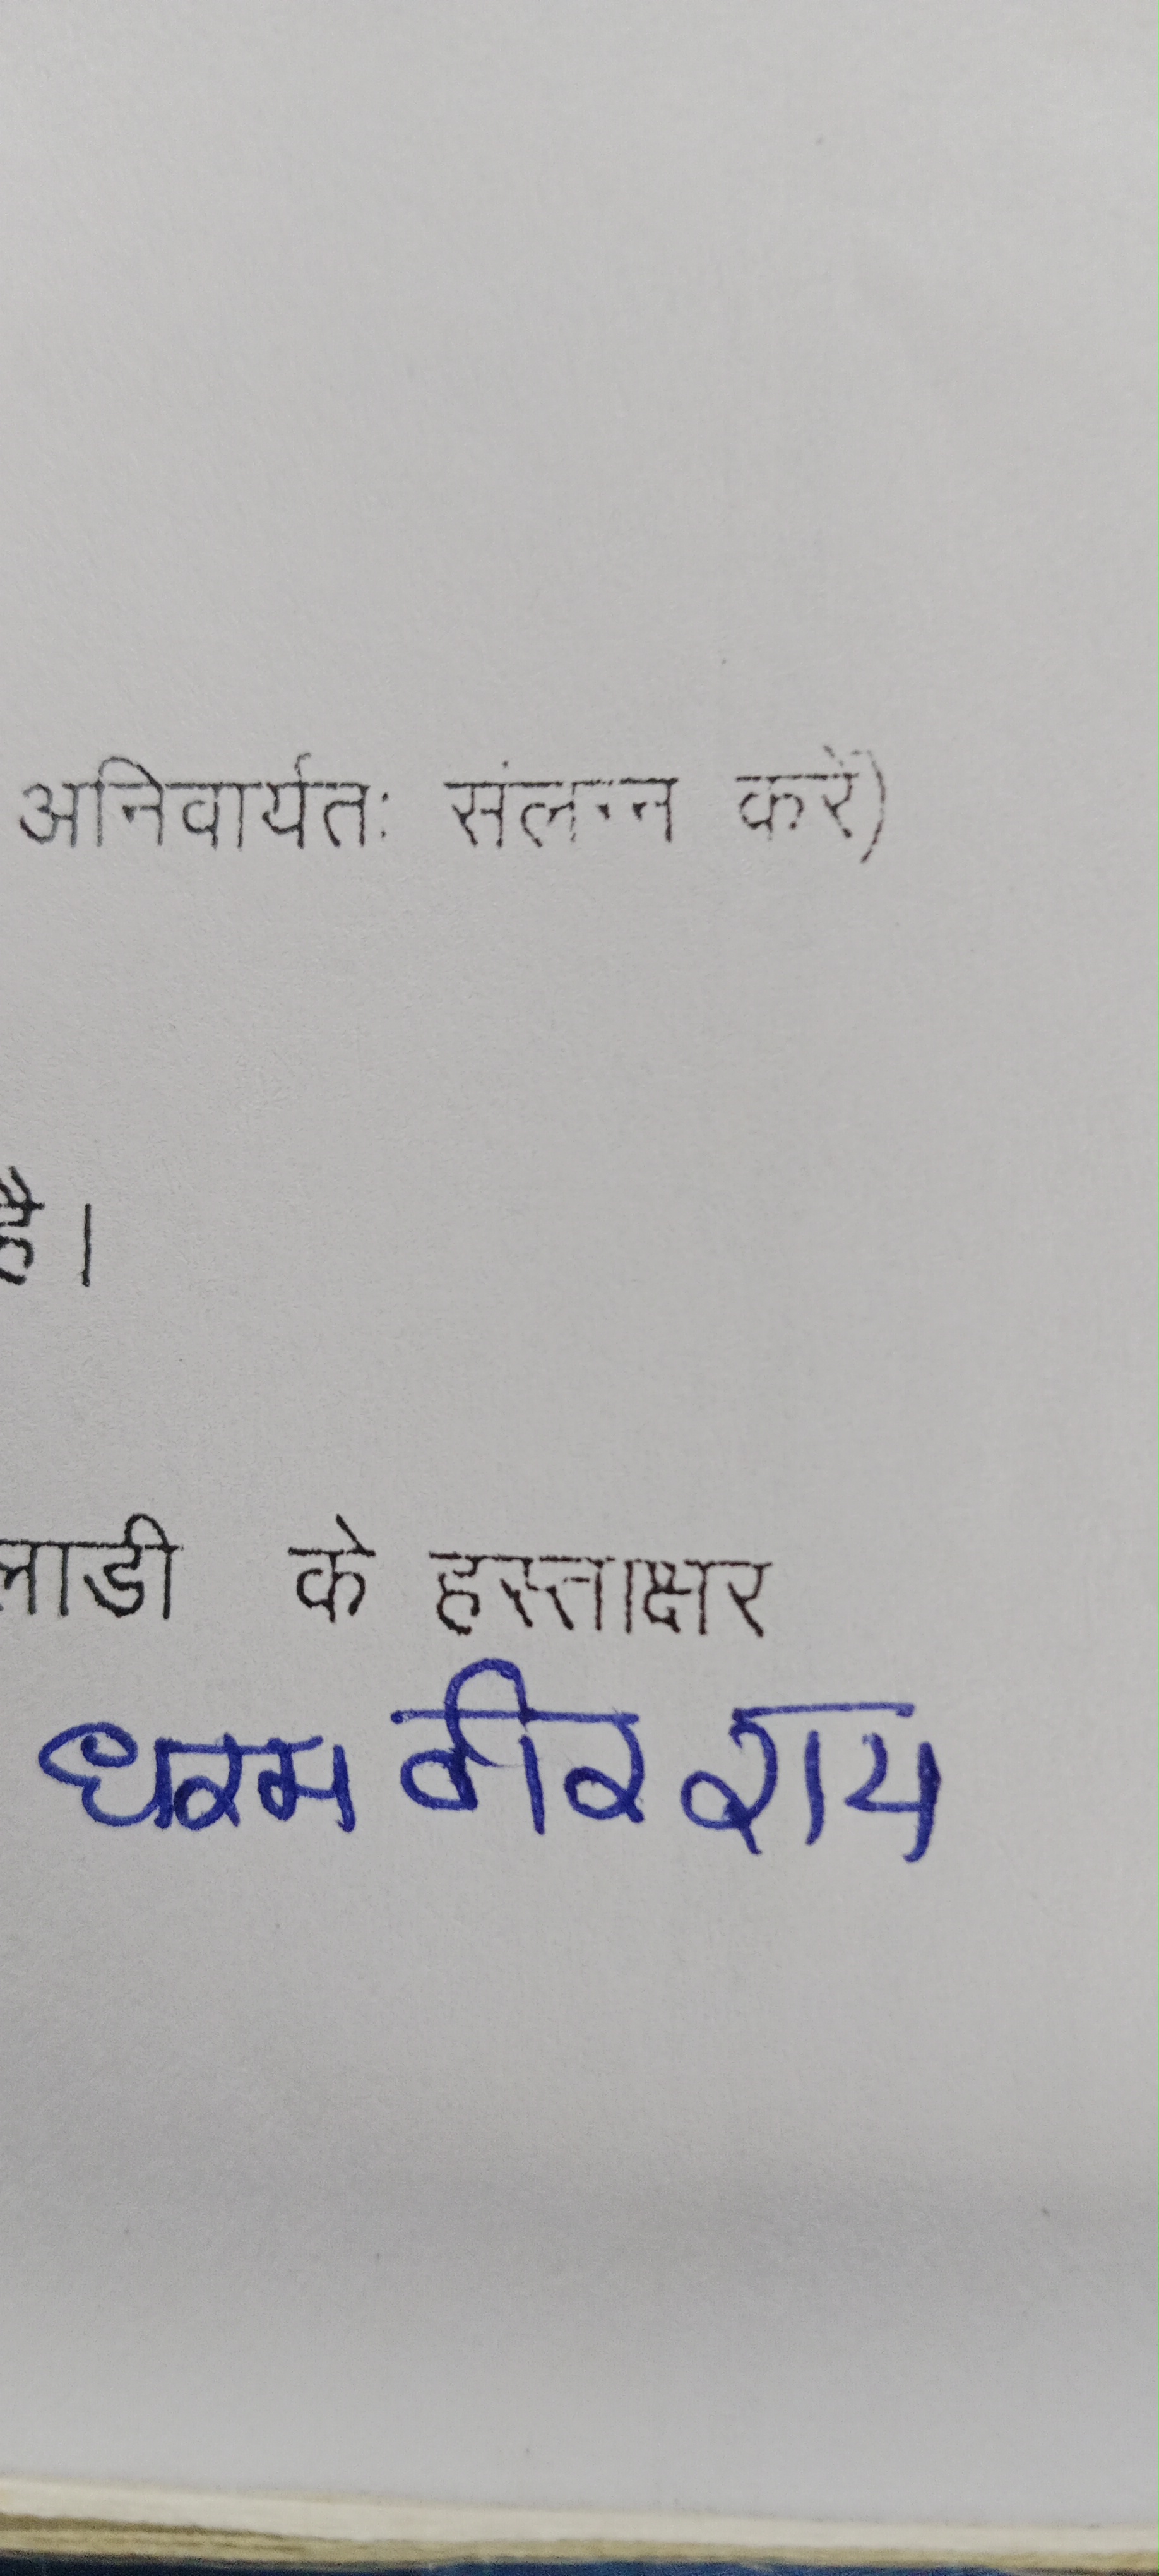 अनिवार्यतः संलग्न करें)
है।
लाडी के हस्ताक्षर
धरम वीर राय